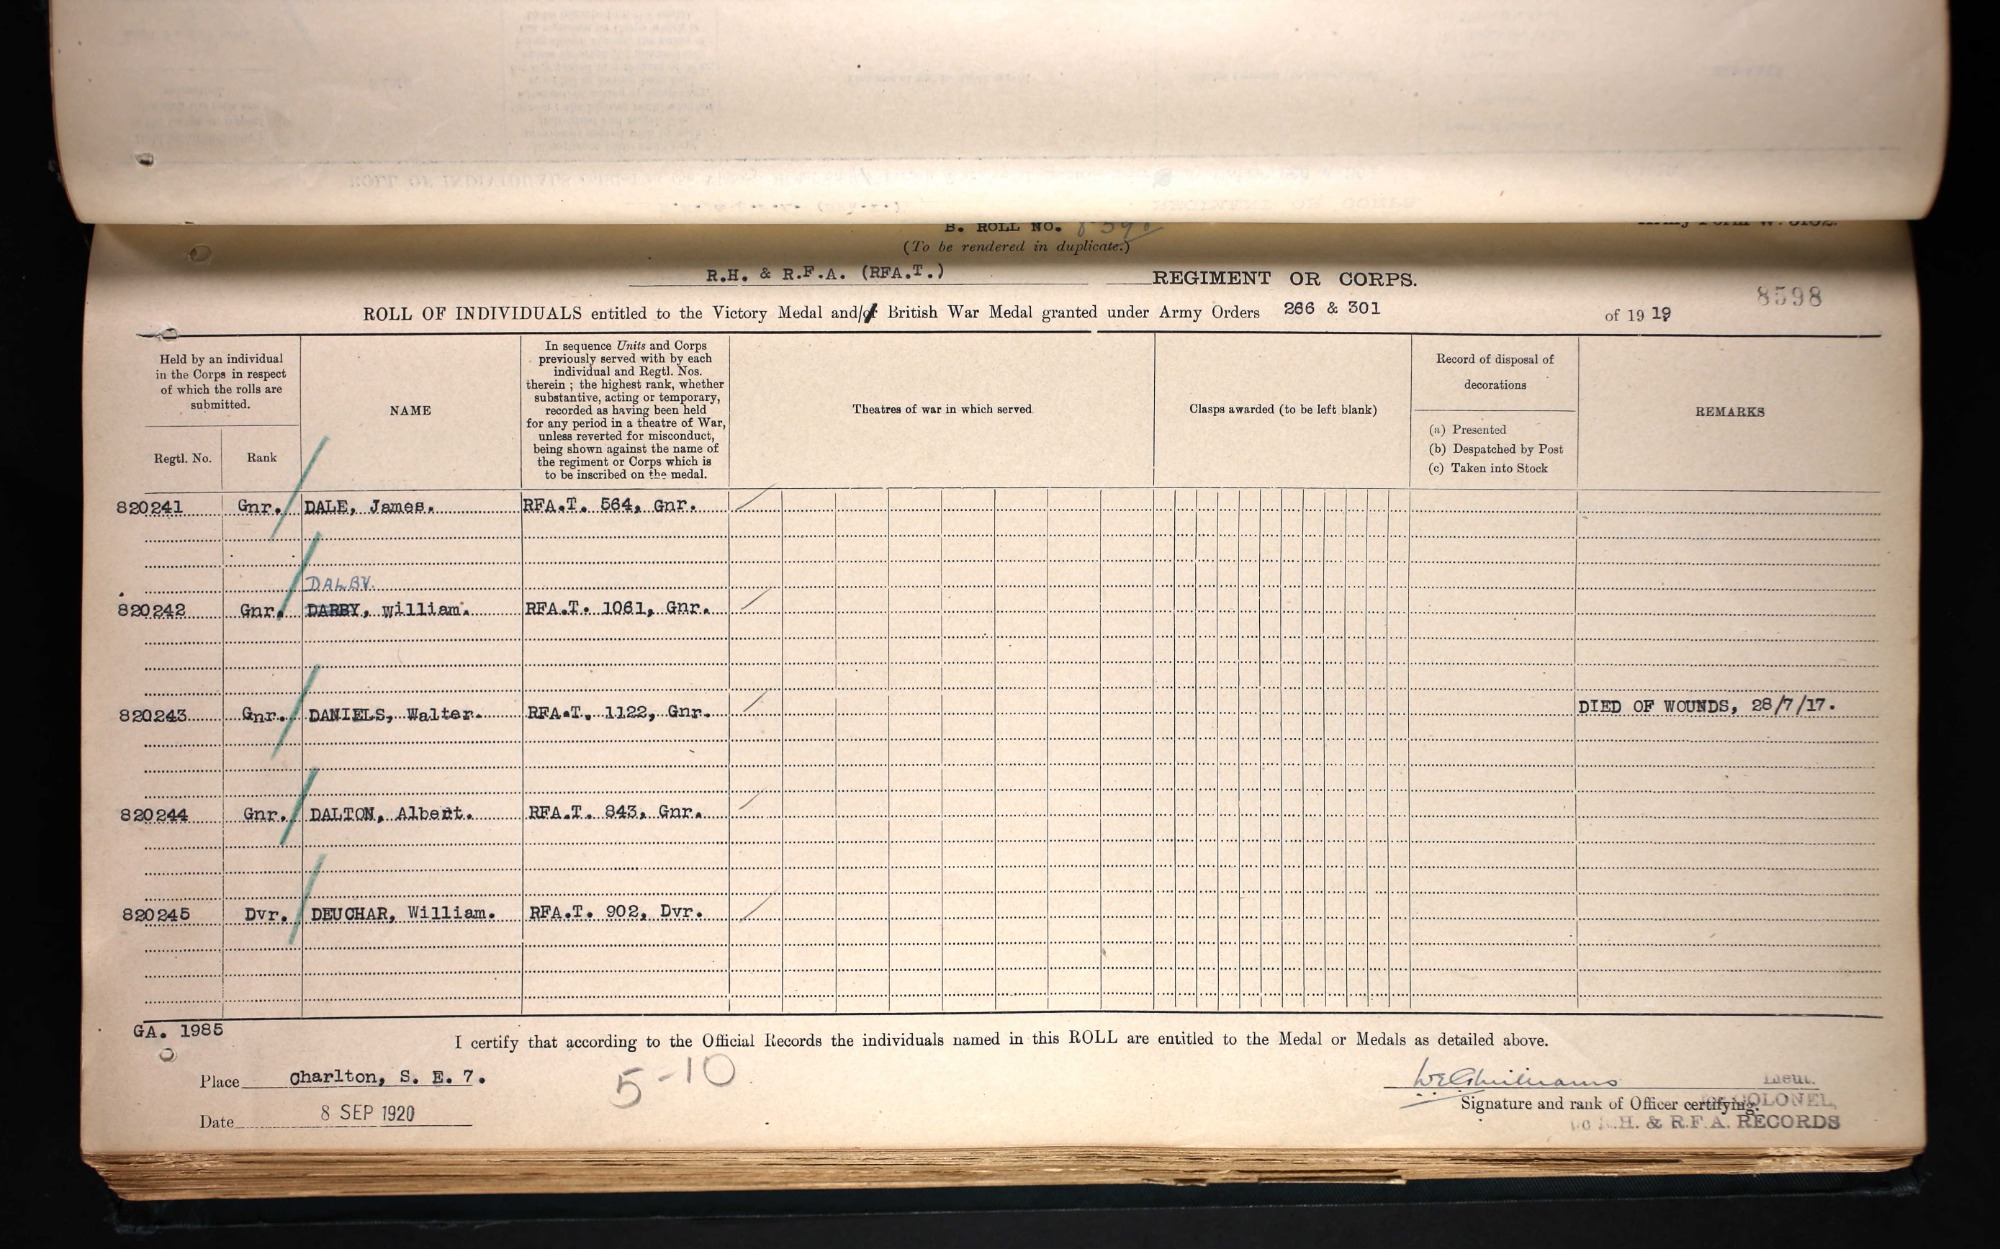 B. ROLL NO.
(To be rendered in duplicate.)
R.H. & R.F.A. (RFA.T.) REGIMENT OR CORPS.
8598
ROLL OF INDIVIDUALS entitled to the Victory Medal and/or British War Medal granted under Army Orders 266 & 301 of 1919
Held by an individual
in the Corps in respect
of which the rolls are
submitted.
Regtl. No. Rank
NAME
In sequence Units and Corps
previously served with by each
individual and Regtl. Nos.
therein ; the highest rank, whether
substantive, acting or temporary,
recorded as having been held
for any period in a theatre of War,
unless reverted for misconduct,
being shown against the name of
the regiment or Corps which is
to be inscribed on the medal.
Theatres of war in which served
Clasps awarded (to be left blank)
Record of disposal of
decorations
(a) Presented
(b) Despatched by Post
(c) Taken into Stock
REMARKS
820241 Gnr. DALE, James. RFA.T. 564, Gnr.
DALBY.
820242 Gnr. DARBY, William. RFA.T. 1061, Gnr.
820243 Gnr. DANIELS, Walter. RFA.T. 1122, Gnr. DIED OF WOUNDS, 28/7/17.
820244 Gnr. DALTON, Albert. RFA.T. 843, Gnr.
820245 Dvr. DEUCHAR, William. RFA.T. 902, Dvr.
GA. 1985
I certify that according to the Official Records the individuals named in this ROLL are entitled to the Medal or Medals as detailed above.
Place Charlton, S. E. 7.
5-10
Lieut.
Date 8 SEP 1920
Signature and rank of Officer certifying.
COLONEL,
H. & R.F.A. RECORDS